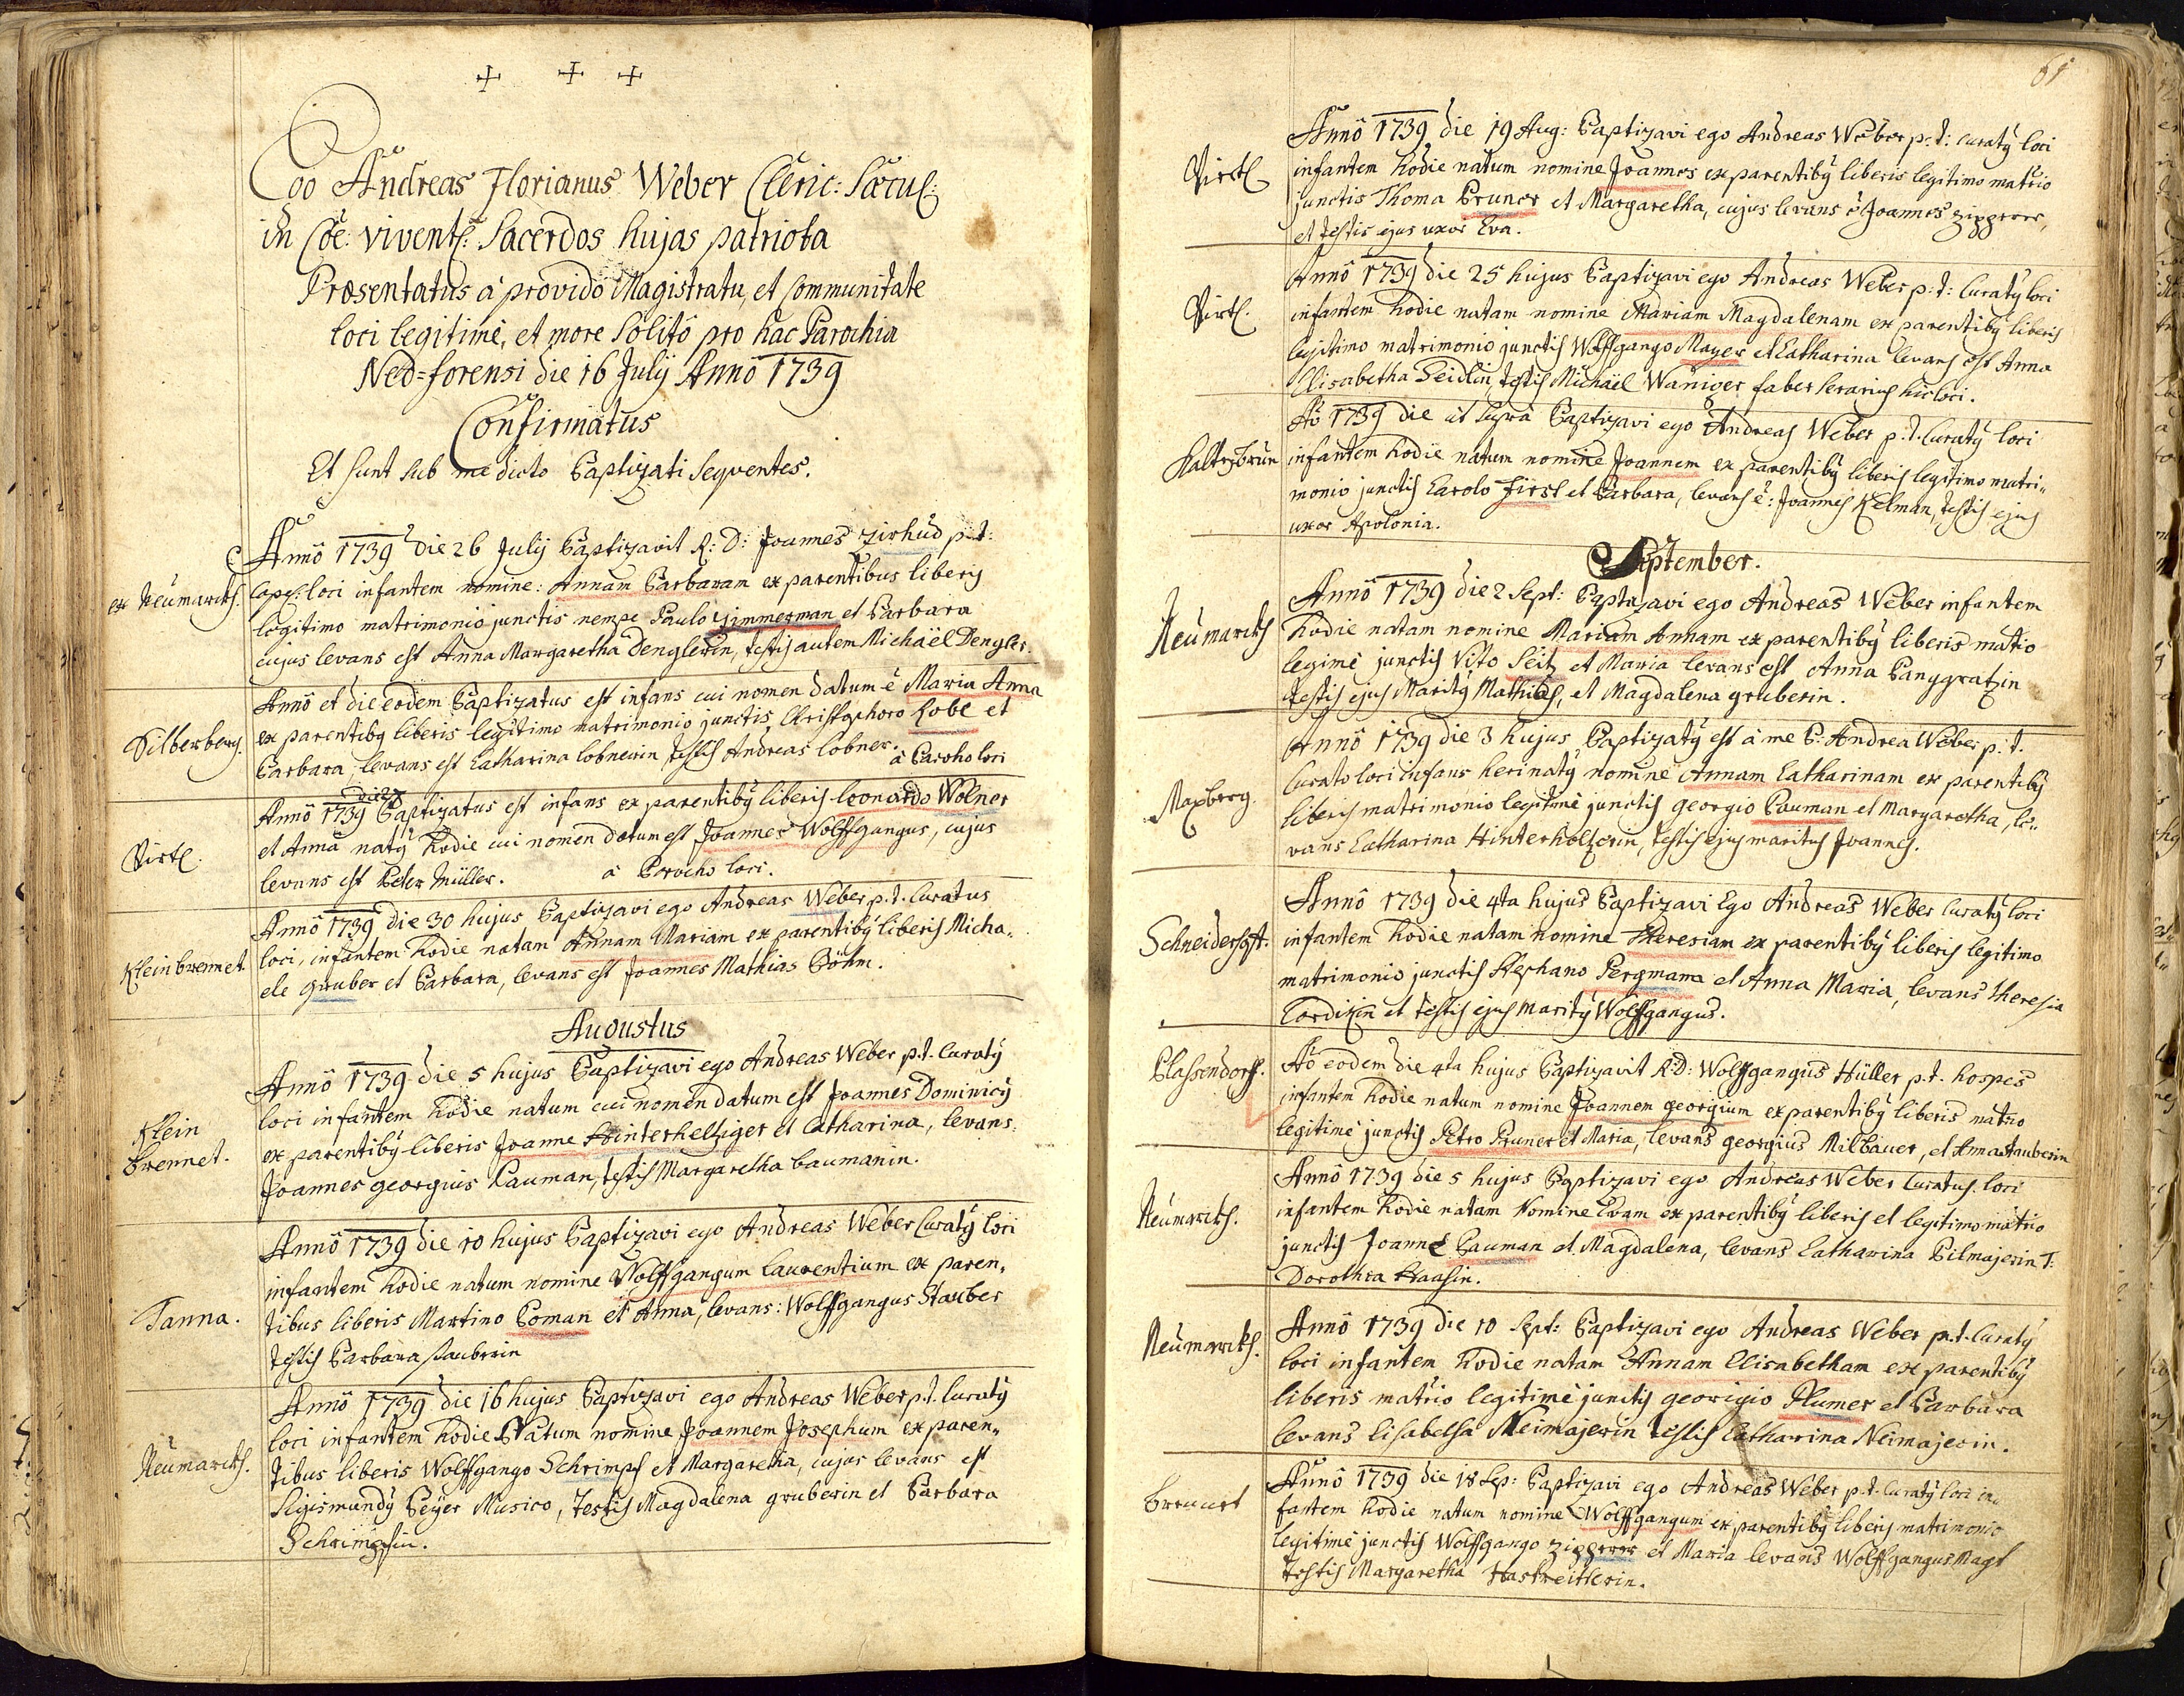 Ego Andreas Florianus Weber Cleric: Sæcul:
in Coe: vivent: Sacerdos hujas patriota
Præsentatus à provido Magistratu, et Communitate
loci legitimè, et more solitô pro hac Parochia
Neô-forensi die 16 July Annô 1739
Confirmatus
Et sunt sub me dicto Baptizati sequentes.
Annô 1739 die 26 July Baptizavit R: D: Joannes Zirhud p:t:
ex Neumarckh.
Cape: loci infantem nomine: Annam Barbaram ex parentibus liberis
legitimo matrimonio junctis nempe Paulo Zimmerman et Barbara
cujus levans est Anna Margaretha Denglerin, testis autem Michäel Dengler
Silberberg.
Annô et die eodem Baptizatus est infans cui nomen datum ê Maria Anna
ex parentibỹ liberis legitimo matrimonio junctis, Christophoro Kobl et
Barbara, levans est Catharina lobnerin testis Andreas lobner. à Parocho loci
Virtl.
Annô 1739 Baptizatus est infans ex parentibỹ liberis leonardo Wolner
et Anna natỹ hodie cui nomen datum est Joannes Wolffgangus, cujus
levans est Peter Müller. à Parocho loci.
Klein brennet.
Annô 1739 die 30 hujus Baptizavi ego Andreas Weber p.t. Curatus
loci, infantem hodie natam Annam Mariam ex parentibỹ liberis Micha„
ele gruber et Barbara, levans est Joannes Mathias Böhm.
Augustus
Klein
brennet.
Annô 1739 die 5 hujus Baptizavi ego Andreas Weber p.t. Curatỹ
loci infantem hodie natum cui nomen datum est Joannes Dominicỹ
ex parentibỹ liberis Joanne Hinterheltziger et Catharina, levans:
Joannes georgius Pauman, testis Margaretha baumanin.
Tanna.
Annô 1739 die 10 hujus Baptizavi ego Andreas Weber Curatỹ loci
infantem hodie natum nomine Wolffgangum Laurentium ex paren„
tibus liberis Martino Poman et Anna, levans: Wolffgangus Stauber
testis Barbara stauberin
Neumarckh.
Annô 1739 die 16 hujus Baptizavi ego Andreas Weber p.t. Curatỹ
loci infantem hodie Natum nomine Joannem Josephum ex paren„
tibus liberis Wolffgango Schrimpf et Margaretha, cujus levans est
Sigismundỹ Peyer Musico, testis Magdalena gruberin et Barbara
Schrimpfin.
61
Virtl.
Annô 1739 die 19 Aug: Baptizavi ego Andreas Weber p:t: curatỹ loci
infantem hodie natum nomine Joannes ex parentibỹ liberis legitimo matrio
junctis Thoma Pruner et Margaretha, cujus levans ê Joannes Zipperer,
et testis ejus uxor Eva.
Virtl.
Annô 1739 die 25 hujus Baptizavi ego Andreas Weber p:t: Curatỹ loci
infantem hodie natam nomine Mariam Magdalenam ex parentibỹ liberis
legitimo matrimonio junctis Wolffgango Mayer et Catharina levans est Anna
Elisabetha Seidlin, testis Michäel Waniger faber serarius hic loci.
Kaltenbrun
Aô 1739 die ut supra Baptizavi ego Andreas Weber p.t. Curatỹ loci
infantem hodie natum nomine Joannem ex parentibỹ liberis legitimo matri„
monio junctis Carolo First et Barbara, levans ê: Joannes Kelman, testis ejus
uxor Apolonia.
September.
Neumarckh
Annô 1739 die 2 Sept: Baptizavi ego Andreas Weber infantem
hodie natam nomine Mariam Annam ex parentibỹ liberis matrio
legimè junctis Vito Seitz et Maria levans est Anna Panggratzin
testis ejus Maritỹ Mathias, et Magdalena gruberin.
Maxberg.
Annô 1739 die 3 hujus Baptizatỹ est à me P: Andrea Weber p.t.
Curato loci infans heri natỹ nomine Annam Catharinam ex parentibỹ
liberis matrimonio legitimè junctis georgio Pauman et Margaretha, le„
vans Catharina Hinterholtzerin, testis ejus maritus Joannes.
Schneidershft.
Annô 1739 die 4ta hujus Baptizavi Ego Andreas Weber Curatỹ loci
infantem hodie natam nomine Theresiam ex parentibỹ liberis legitimo
matrimonio junctis Stephano Pergmann et Anna Maria, levans Theresia
Cordizin et testis ejus maritỹ Wolffgangus.
Plassendorf.
Aô eodem die 4ta hujus Baptizavit R:D: Wolffgangus Hüller p.t. hospes
infantem hodie natum nomine Joannem georgium ex parentibỹ liberis matrio
legitimè junctis Petro Pruner et Maria, levans georgius Milbauer, et Anna stauberin
Neumarckh.
Annô 1739 die 5 hujus Baptizavi ego Andreas Weber Curatus loci
infantem hodie natam Nomine Evam ex parentibỹ liberis et legitimo matrio
junctis Joanne Pauman et Magdalena, levans Catharina Pilmajerin T:
Dorothea Haasin.
Neumarckh.
Annô 1739 die 10 Sept: Baptizavi ego Andreas Weber p.t. Curatỹ
loci infantem hodie natam Annam Elisabetham ex parentibỹ
liberis matrio legitimè junctis georigio Plumer et Barbara
levans Elisabetha Neimajerin testis Catharina Neimajerin.
brennet
Annô 1739 die 18 Sep: Baptizavi ego Andreas Weber p.t. Curatỹ loci in„
fantem hodie natum nomine Wolffgangum ex parentibỹ liberis matrimonio
legitimè junctis Wolffgango Zipperer et Maria levans Wolffgangus Magt
testis Margaretha Haskreitterin.